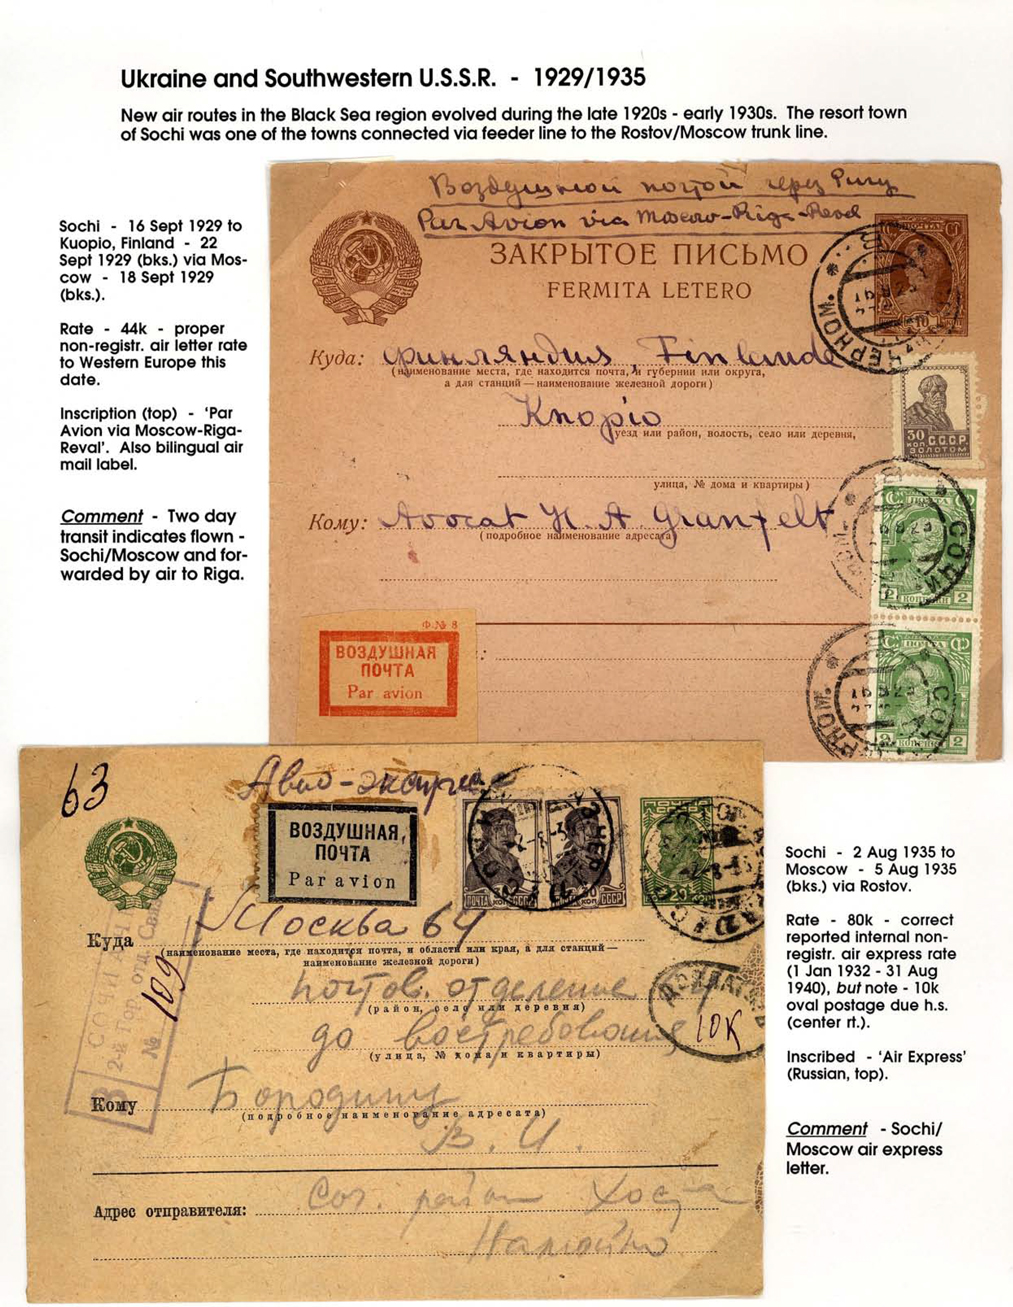 Ukraine and Southwestern U.S.S.R. - 1929/1935
New air routes in the Black Sea region evolved during the late 1920s - early 1930s. The resort town
of Sochi was one of the towns connected via feeder line to the Rostov/Moscow trunk line.
Sochi - 16 Sept 1929 to
Kuopio, Finland - 22
Sept 1929 (bks.) via Mos-
cow - 18 Sept 1929
(bks.).
Rate - 44k - proper
non-registr. air letter rate
to Western Europe this
date.
Inscription (top) - 'Par
Avion via Moscow-Riga-
Reval'. Also bilingual air
mail label.
Comment - Two day
transit indicates flown -
Sochi/Moscow and for-
warded by air to Riga.
Воздушной почтой через Ригу
Par Avion via Moscow-Riga-Reval
ЗАКРЫТОЕ ПИСЬМО
FERMITA LETERO
Куда: Финляндия, Finlande
(наименование места, где находится почта, и губернии или округа,
а для станций — наименование железной дороги)
Kuopio
уезд или район, волость, село или деревня,
улица, № дома и квартиры)
Кому: Advocat H. A. Granfelt
(подробное наименование адресата)
30
КОП. С.С.С.Р.
ЗОЛОТОМ
СОЧИ
ПОЧТА
2 КОПЕЙКИ 2
СОЧИ
Ф.№ 8
ВОЗДУШНАЯ
ПОЧТА
Par avion
63
Авио-экспресс
ВОЗДУШНАЯ
ПОЧТА
Par avion
Куда Москва 64
(наименование места, где находится почта, и области или края, а для станций —
наименование железной дороги)
почтов. отделение
(район, село или деревня)
до востребования
(улица, № дома и квартиры)
СОЧИ
2-й Гор. отд. Связи
№ 109
ДОПЛАТИТЬ
10К
Кому Бородину
(подробное наименование адресата)
В. И.
Адрес отправителя: Соч. район Хоста
Sochi - 2 Aug 1935 to
Moscow - 5 Aug 1935
(bks.) via Rostov.
Rate - 80k - correct
reported internal non-
registr. air express rate
(1 Jan 1932 - 31 Aug
1940), but note - 10k
oval postage due h.s.
(center rt.).
Inscribed - 'Air Express'
(Russian, top).
Comment - Sochi/
Moscow air express
letter.